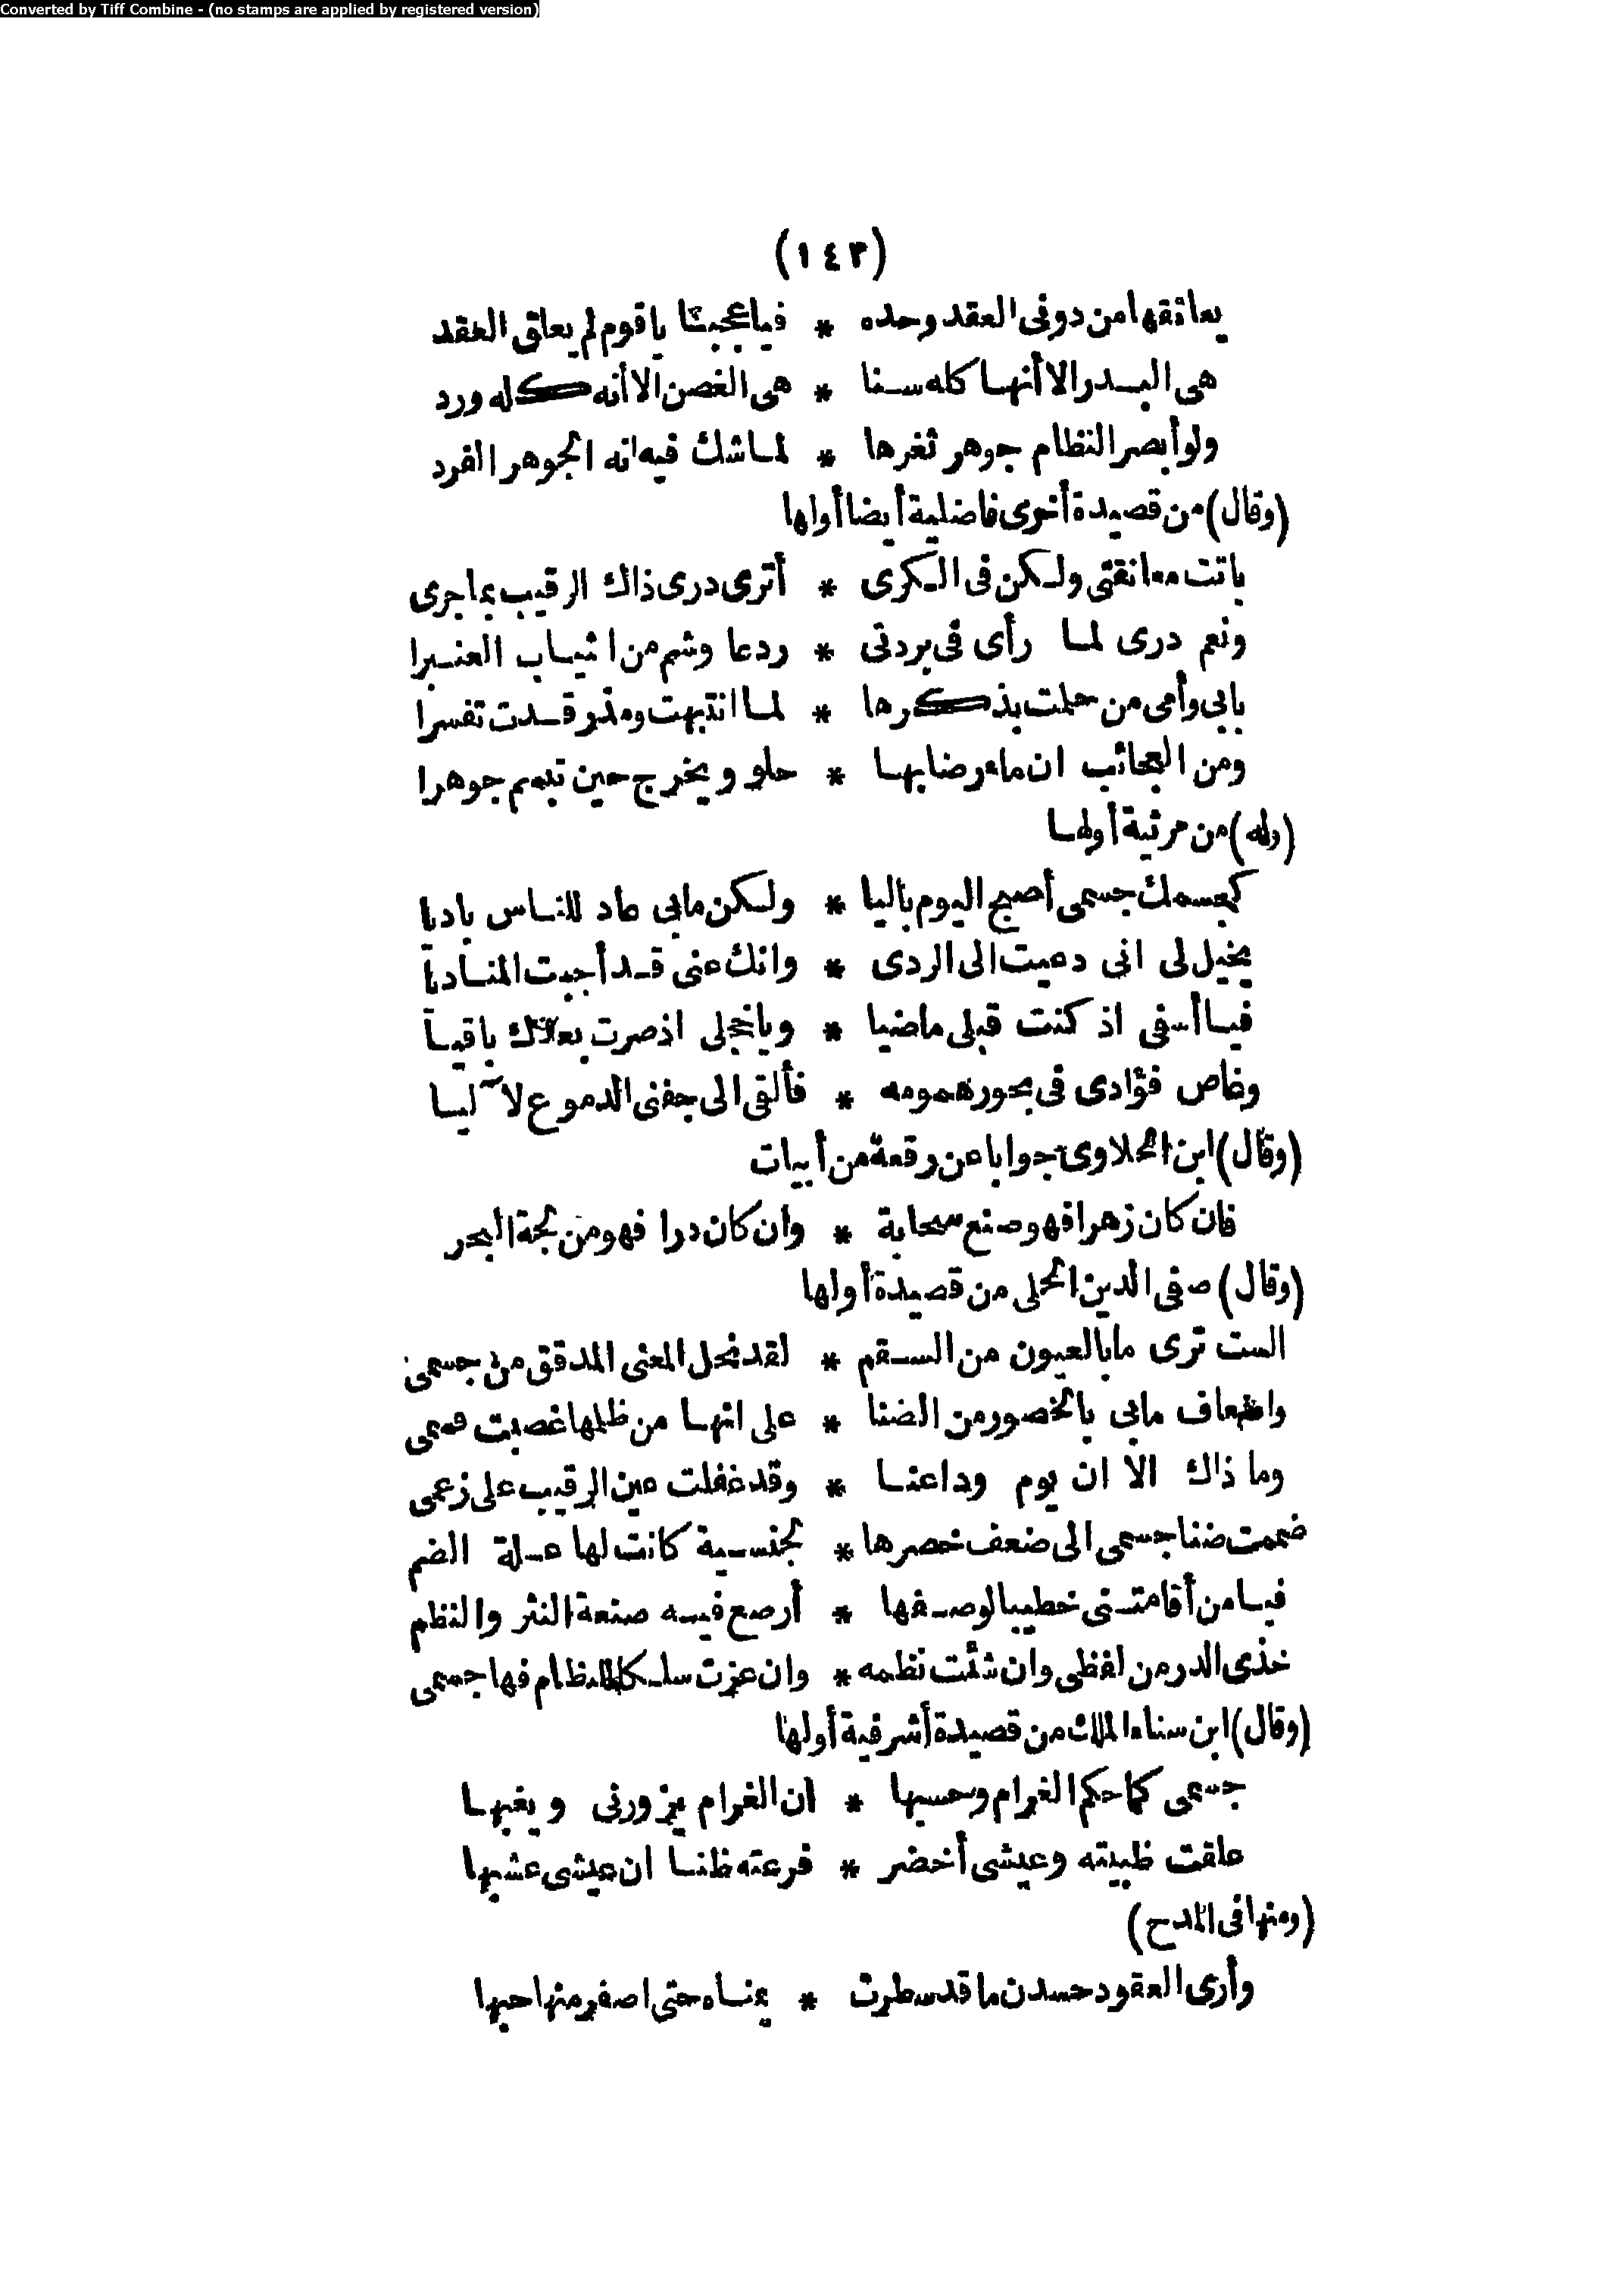 Converted by Tiff Combine - (no stamps are applied by registered version)
(١٤٣)
يعانقها من دونى العقد وحده * فياعجبتا ياقوم لم يعلق العقد
هى البدر الا أنها كله سنا * هى الغصن الا أنه كله ورد
ولو أبصر النظام جوهر ثغرها * لما شك فيه انه الجوهر الفرد
(وقال) من قصيدة أخرى فاضلية أيضا أولها
باتت معانقتى ولكن فى الكرى * أترى درى ذاك الرقيب بما جرى
ونعم درى لما رأى فى بردتى * ردعا وشم من اثياب العنبرا
بابى وأمى من حلمت بذكرها * لما انتبهت ومذر قدت تفسرا
ومن العجائب ان ماء رضابها * حلو ويخرج حين تبسم جوهرا
(وله) من مرثية أولها
كجسمك جسمى أصبح اليوم باليا * ولكن مابى عاد للناس باديا
يخيل لى انى دعيت الى الردى * وانك عنى قد أجبت المناديا
فيا أسفى اذ كنت قبلى ماضيا * وياخجلى اذ صرت بعدك باقيا
وغاص فؤادى فى بحور همومه * فألقى الى جفنى الدموع لآليا
(وقال) ابن الحلاوى جوابا عن رقعة من أبيات
فان كان زهرا فهو صنع سحابة * وان كان درا فهو من لجة البحر
(وقال) صفى الدين الحلى من قصيدة أولها
الست ترى مابالعيون من السقم * لقد نحل المعنى المدقق من جسمى
واضعاف مابى بالخصور من الضنا * على انها من ظلمها غصبت قسمى
وما ذاك الا ان يوم وداعنا * وقد غفلت عين الرقيب على زعمى
ضممت ضنا جسمى الى ضعف خصرها * لجنسية كانت لها علة الضم
فيا من أقامتنى خطيبا لوصفها * أرصع فيه صنعة النثر والنظم
خذى الدر من لفظى وان شئت نظمه * وان عزت سلكا للنظام فها جسمى
(وقال) ابن سناء الملك من قصيدة أشرفية أولها
جسمى كما حكم الغرام وحسبها * ان الغرام يزورنى ويغبها
علقت ظبيته وعيشى أخضر * فرعته ظنا ان عيشى عشبها
(ومنها فى المدح)
وأرى العقود حسدن ما قد سطرت * يمناه حتى اصفر منها حبها